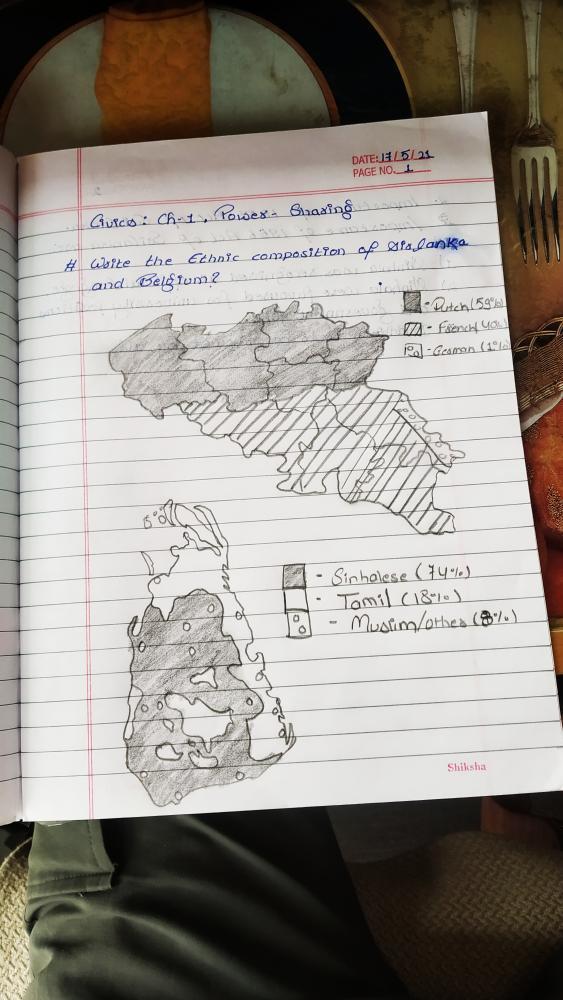 DATE: 17/5/21
PAGE NO. 1
Civics: Ch-1, Power-Sharing
# Write the Ethnic composition of Sislanka
and Belgium?
- Dutch (59%)
- French (40%)
- German (1%)
- Sinhalese (74%)
- Tamil (18%)
- Muslim/other (8%)
Shiksha